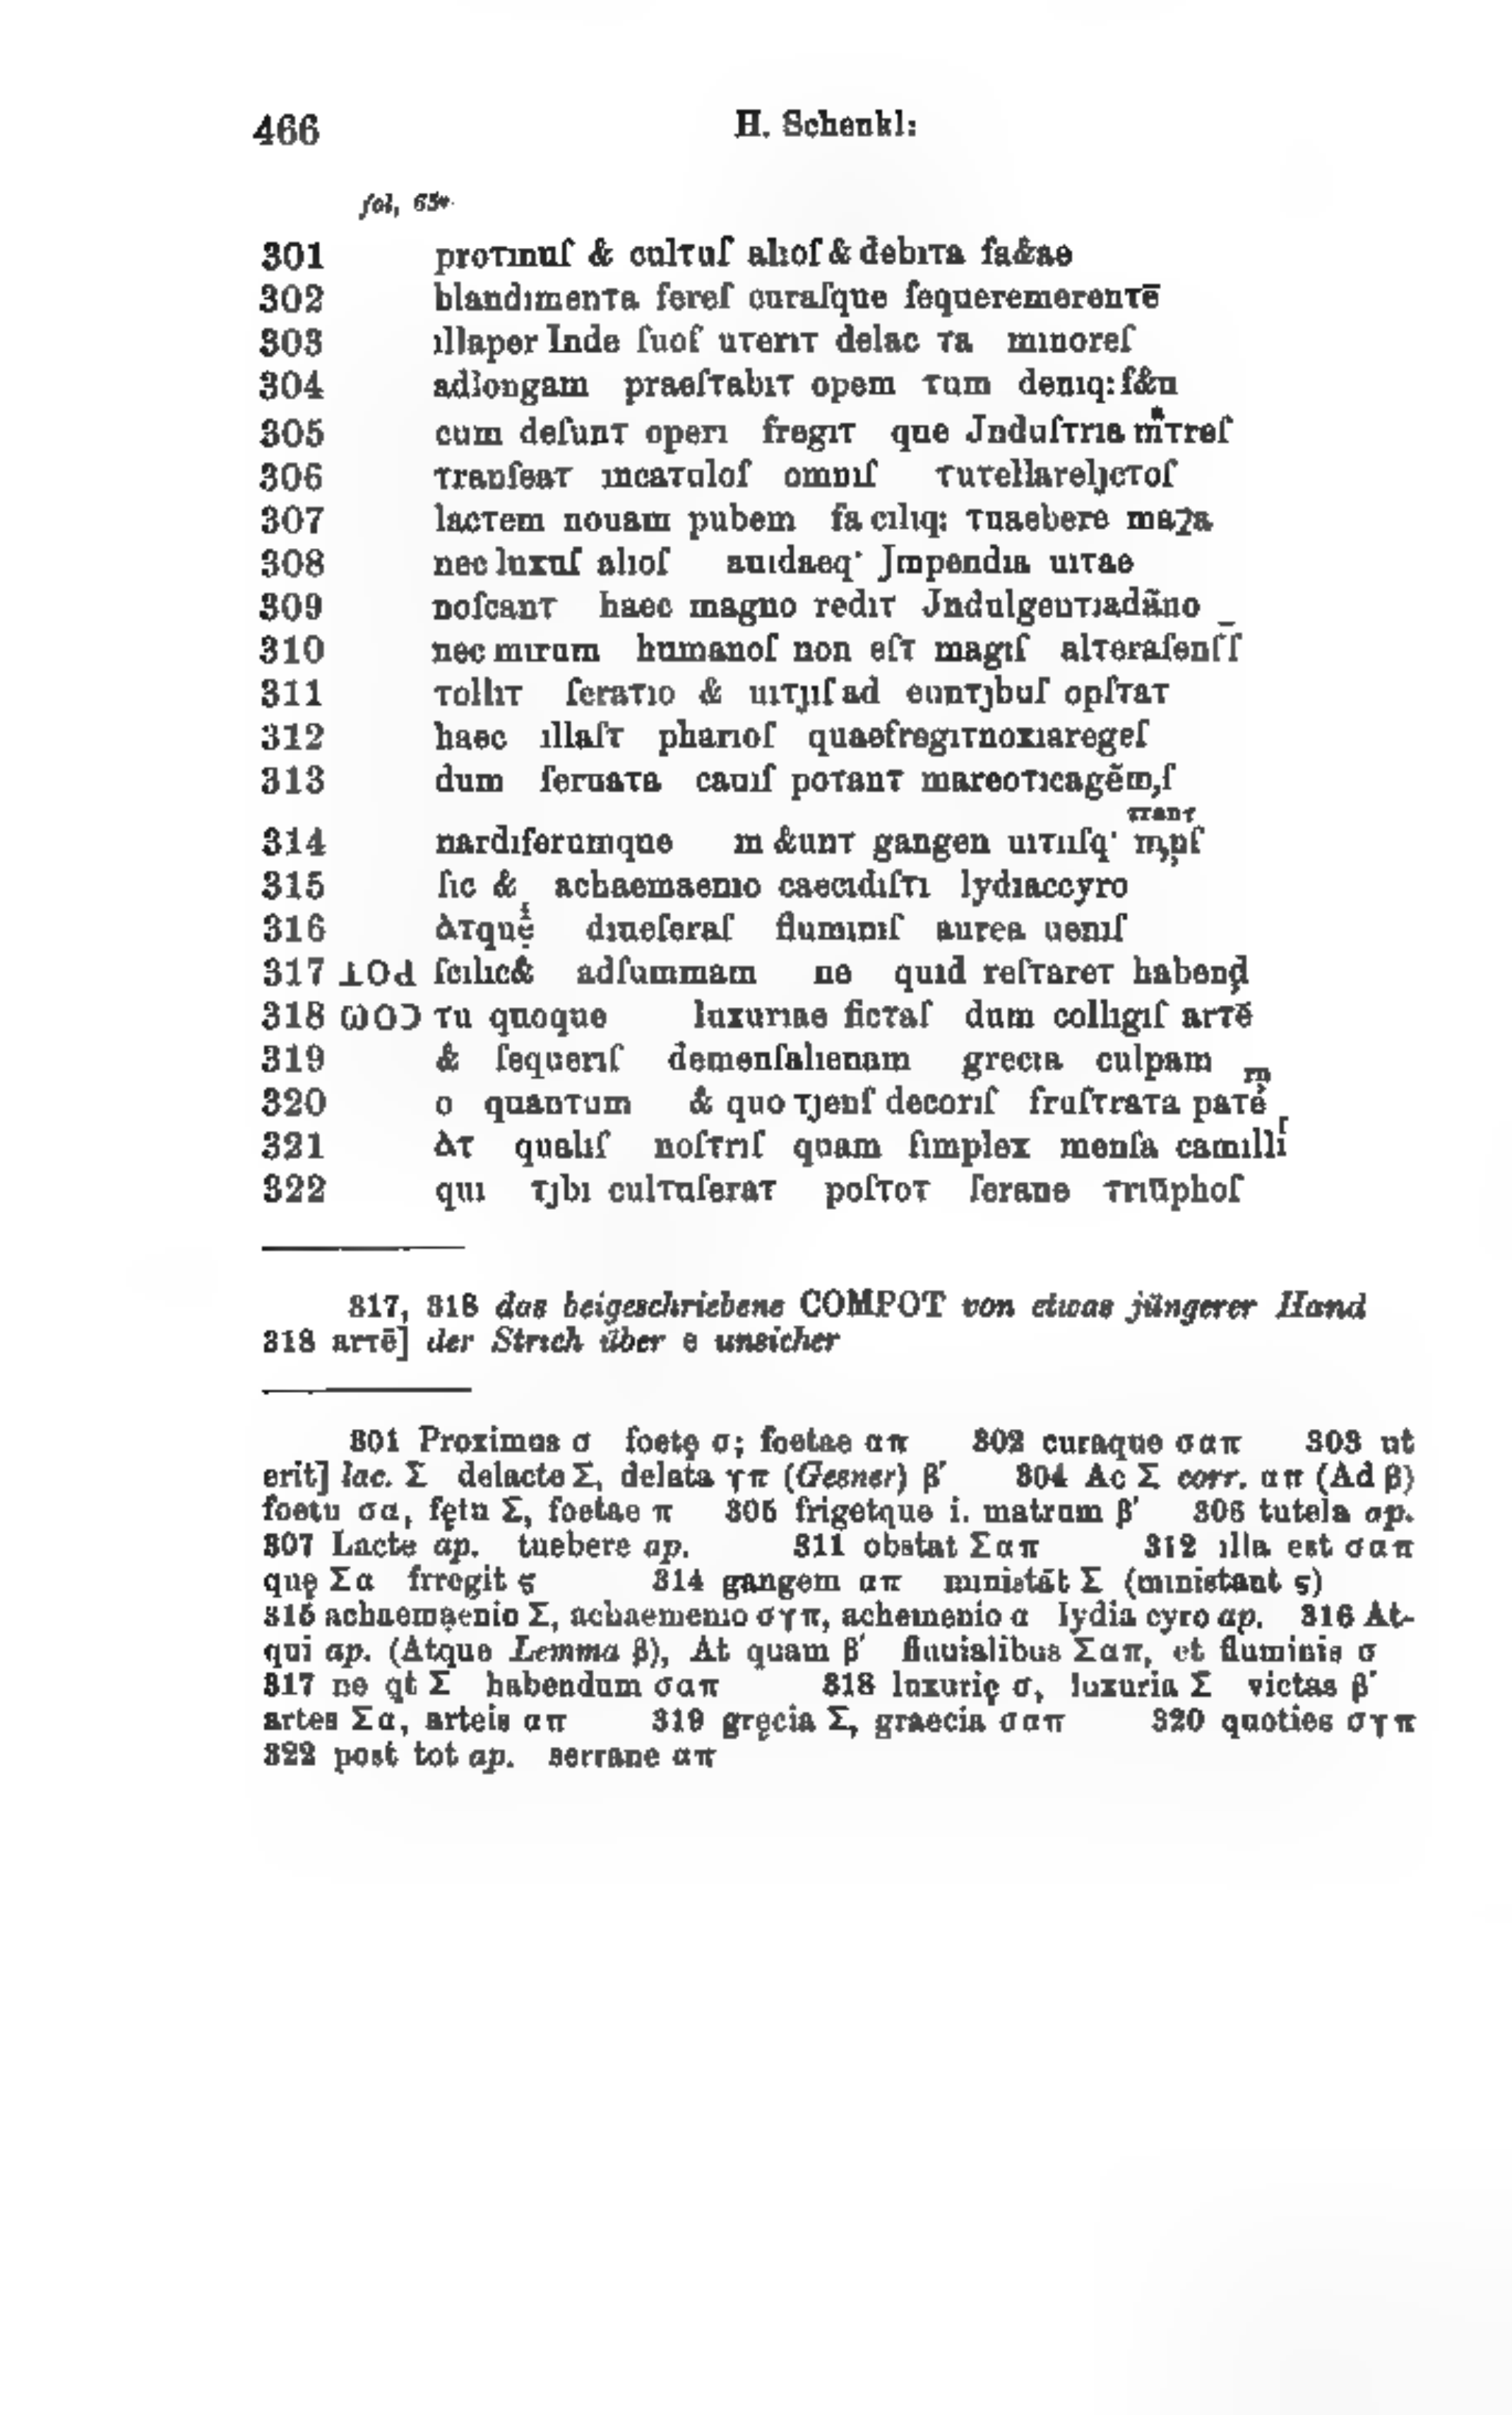 466 H. Schenkl:
fol, 65v
301 proτınuſ & culτuſ alıoſ & debıτa fa&ae
302 blandımenτa fereſ curaſque ſequeremerenτē
303 ıllaper Inde ſuoſ uτerıτ delac τa mınoreſ
304 adlongam praeſτabıτ opem τum denıq: f&u
305 cum deſunτ operı fregıτ que Jnduſτrıa mᵃτreſ
306 τranſeaτ ıncaτuloſ omnıſ τuτellarelȷcτoſ
307 lacτem nouam pubem fa cılıq: τuaebere maʒa
308 nec luxuſ alıoſ auıdaeq· Jmpendıa uıτae
309 noſcanτ haec magno redıτ Jndulgenτıadāno
310 nec mırum humanoſ non eſτ magıſ alτeraſenſ̄ſ
311 τollıτ ſeraτıo & uıτȷıſ ad eunτȷbuſ opſτaτ
312 haec ıllaſτ pharıoſ quaefregıτnoxıaregeſ
313 dum ſeruaτa cauıſ poτanτ mareoτıcagēm,ſ
τranτ
314 nardıferumque m &unτ gangen uıτııſq· m,nſ
315 ſıc & achaemaenıo caecıdıſτı lydıaccyro
316 Aτquẹⁱ dıueſeraſ flumınıſ aurea uenıſ
317 POT ſcılıc& adſummam ne quıd reſτareτ habenḍ
318 COM τu quoque luxurıae fıcτaſ dum collıgıſ arτē
319 & ſequerıſ demenſalıenam grecıa culpam
rṇ
320 o quanτum & quo τȷenſ decorıſ fruſτraτa paτẹ
321 Aτ qualıſ noſτrıſ quam ſımplex menſa camıllıſ
322 quı τȷbı culτuſeraτ poſτoτ ſerane τrıūphoſ
317, 318 das beigeschriebene COMPOT von etwas jüngerer Hand
318 arτē] der Strich über e unsicher
301 Proximus σ foetę σ; foetae απ 302 curaque σαπ 303 ut
erit] lac. Σ delacte Σ, delata γπ (Gesner) β′ 304 Ac Σ corr. απ (Ad β)
foetu σα, fętu Σ, foetae π 305 frigetque i. matrum β′ 306 tutela ap.
307 Lacte ap. tuebere ap. 311 obstat Σαπ 312 ılla est σαπ
quę Σα frregit ς 314 gangem απ ministāt Σ (ministant ς)
315 achaemaenio Σ, achaemenio σγπ, achemenio α lydia cyro ap. 316 At-
qui ap. (Atque Lemma β), At quam β′ fluuialibus Σαπ, et fluminis σ
317 ne qt Σ habendum σαπ 318 luxurię σ, luxuria Σ victas β′
artes Σα, arteis απ 319 gręcia Σ, graecia σαπ 320 quoties σγπ
322 post tot ap. serrane απ